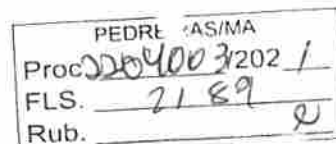 PEDRE AS/MA
Proc 2204003/2021
FLS. 2189
Rub.